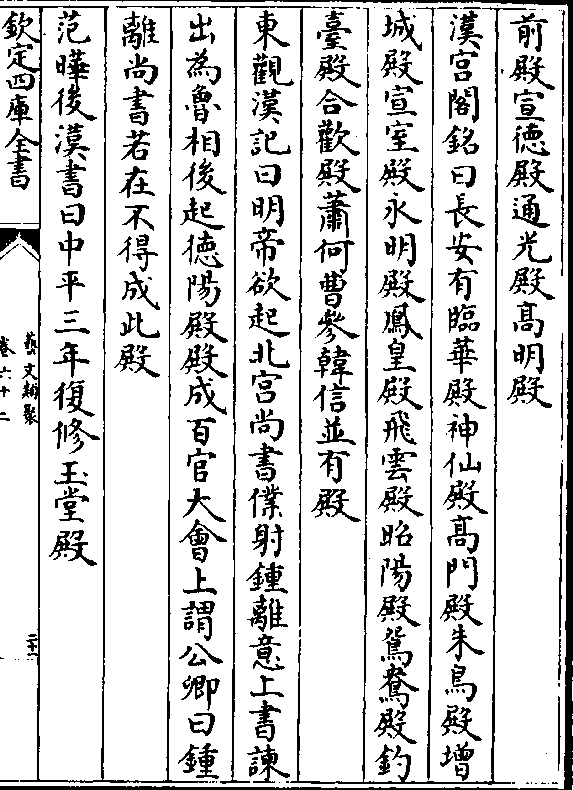 前殿宣徳殿通光殿髙明殿
漢宫閣銘曰長安有臨華殿神仙殿髙門殿朱鳥殿增
城殿宣室殿永明殿鳳皇殿飛雲殿昭陽殿鴛鴦殿釣
臺殿合歡殿蕭何曹參韓信並有殿
東觀漢記曰明帝欲起北宫尚書僕射鍾離意上書諫
出為魯相後起徳陽殿殿成百官大會上謂公卿曰鍾
離尚書若在不得成此殿
范曄後漢書曰中平三年復修玉堂殿
欽定四庫全書
藝文類聚
卷六十二